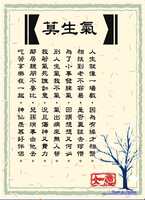 莫生氣
人生就像一場戲 因為有緣才相聚
相扶到老不容易 是否更該去珍惜
為了小事發脾氣 回頭想想又何必
別人生氣我不氣 氣出病來無人替
我若氣死誰如意 況且傷神又費力
鄰居親朋不要比 兒孫瑣事由他去
吃苦享樂在一起 神仙羨慕好伴侶